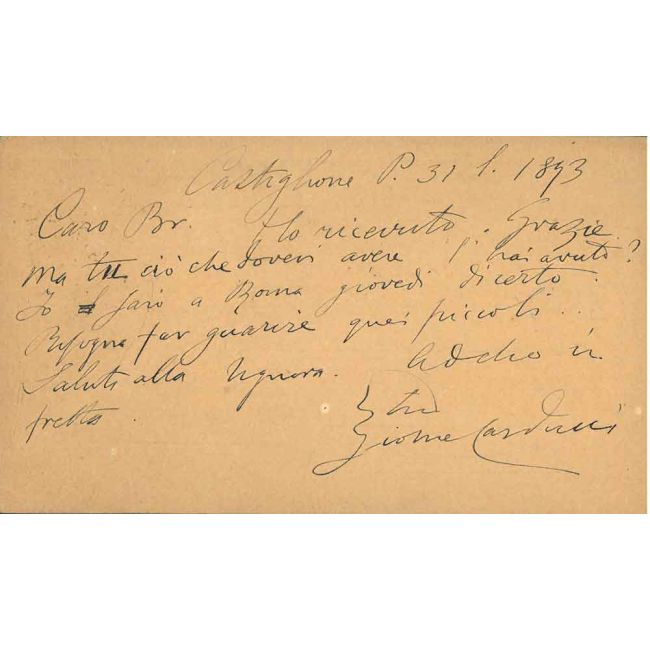 Castiglione P. 31 1. 1893
Caro Br. Ho ricevuto. Grazie.
Ma tu ciò che dovevi avere l'hai avuto?
Io sarò a Roma giovedì di certo.
Bisogna far guarire quei piccoli..
Saluti alla Signora. Addio in
fretta
tuo
Giosue Carducci